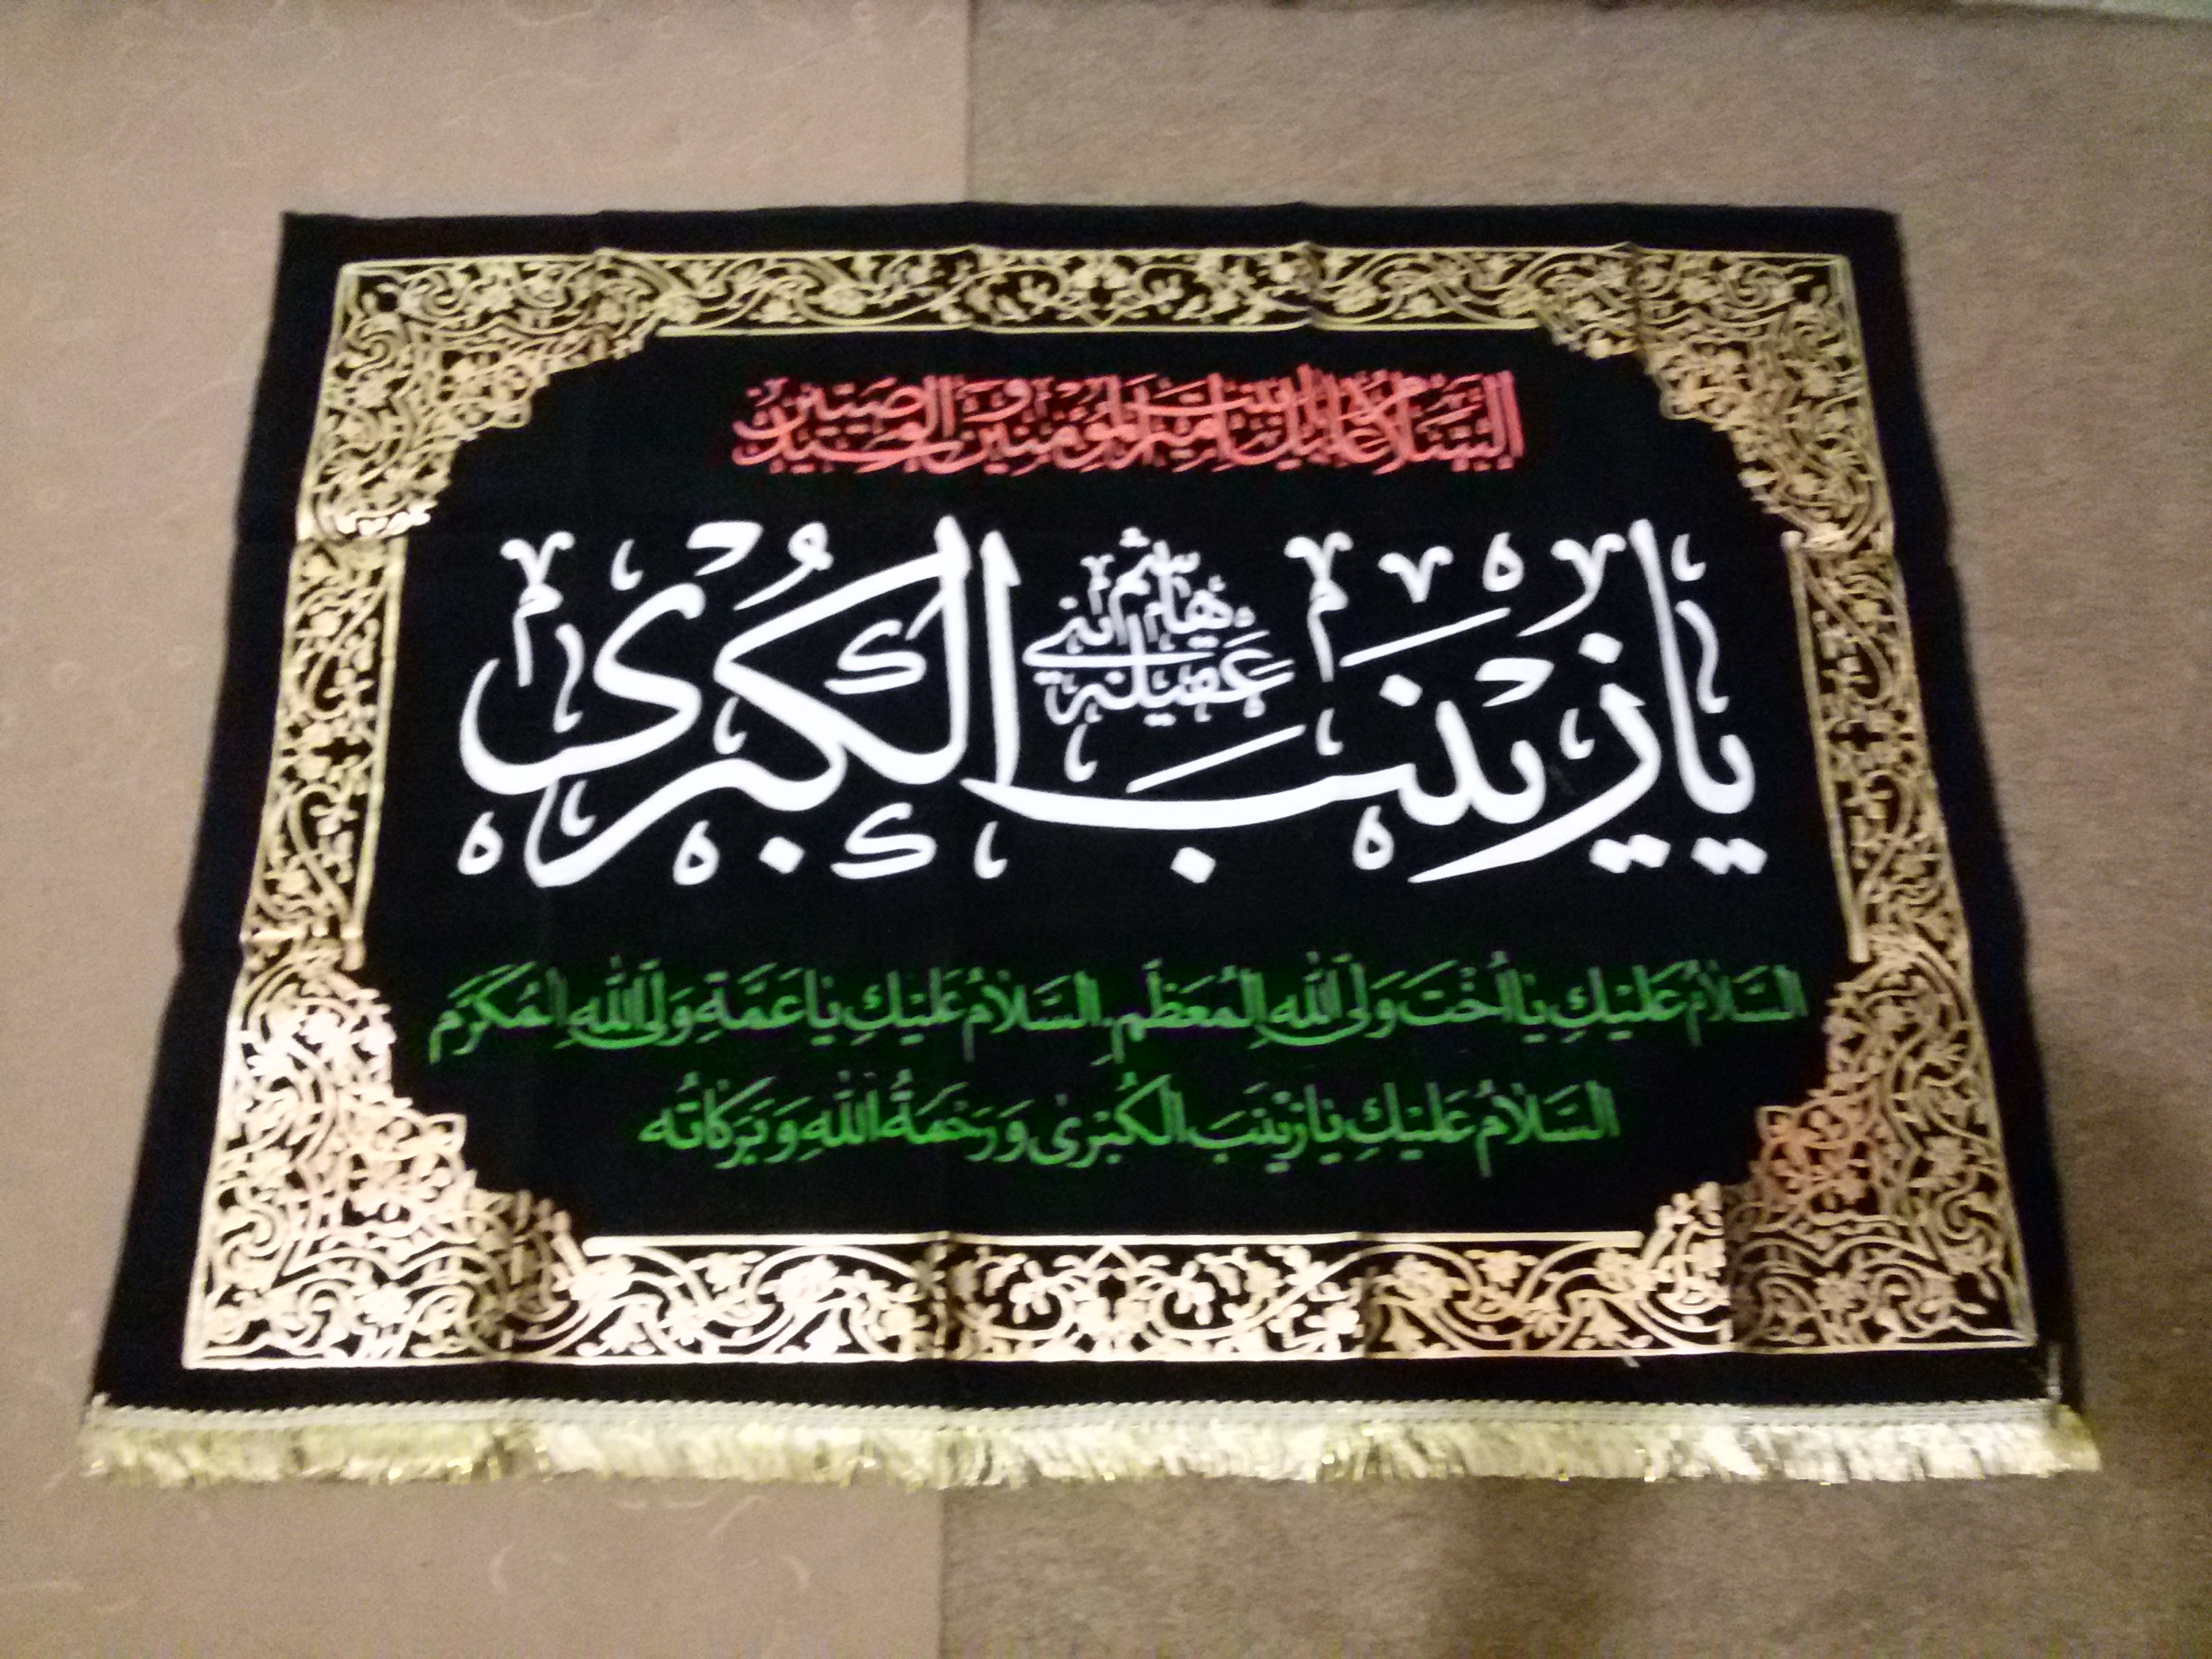 السَّلامُ عَلَيْكِ يا بِنْتَ أَميرِ الْمُؤْمِنينَ وَ سَيِّدِ الْوَصِيّينَ
يا زَيْنَبَ الْكُبْرىٰ
عقيلة
السَّلامُ عَلَيْكِ يا أُخْتَ وَلِيِّ اللهِ الْمُعَظَّمِ السَّلامُ عَلَيْكِ يا عَمَّةَ وَلِيِّ اللهِ الْمُكَرَّمِ
السَّلامُ عَلَيْكِ يا زَيْنَبَ الْكُبْرىٰ وَ رَحْمَةُ اللهِ وَ بَرَكاتُه